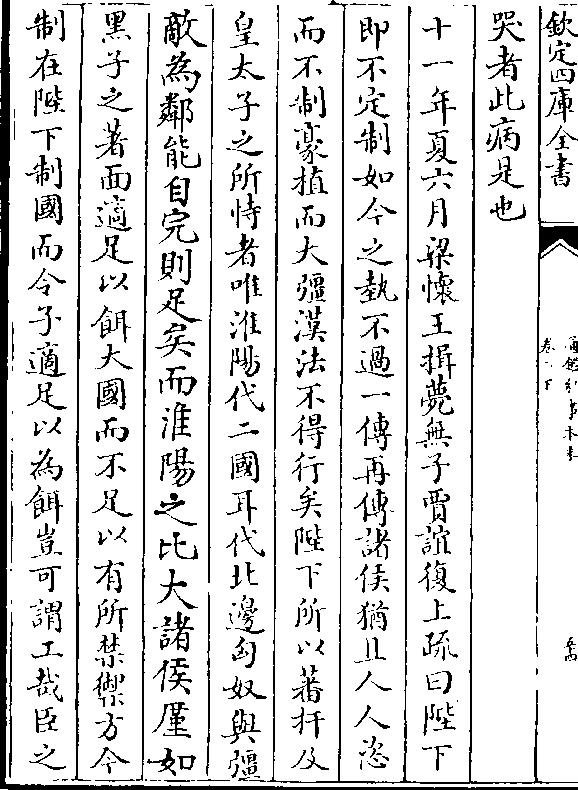 欽定四庫全書
哭者此病是也
十一年夏六月梁懷王揖薨無子賈誼復上疏曰陛下
即不定制如今之埶不過一傳再傳諸侯猶且人人恣
而不制豪植而大彊漢法不得行矣陛下所以蕃扞及
皇太子之所恃者唯淮陽代二國耳代北邊匈奴與彊
敵為鄰能自完則足矣而淮陽之比大諸侯厪如
黑子之著面適足以餌大國而不足以有所禁禦方今
制在陛下制國而令子適足以為餌豈可謂工哉臣之